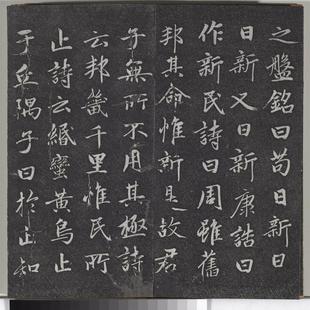 之盤銘曰苟日新日
日新又日新康誥曰
作新民詩曰周雖舊
邦其命惟新是故君
子無所不用其極詩
云邦畿千里惟民所
止詩云緡蠻黃鳥止
于丘隅子曰於止知